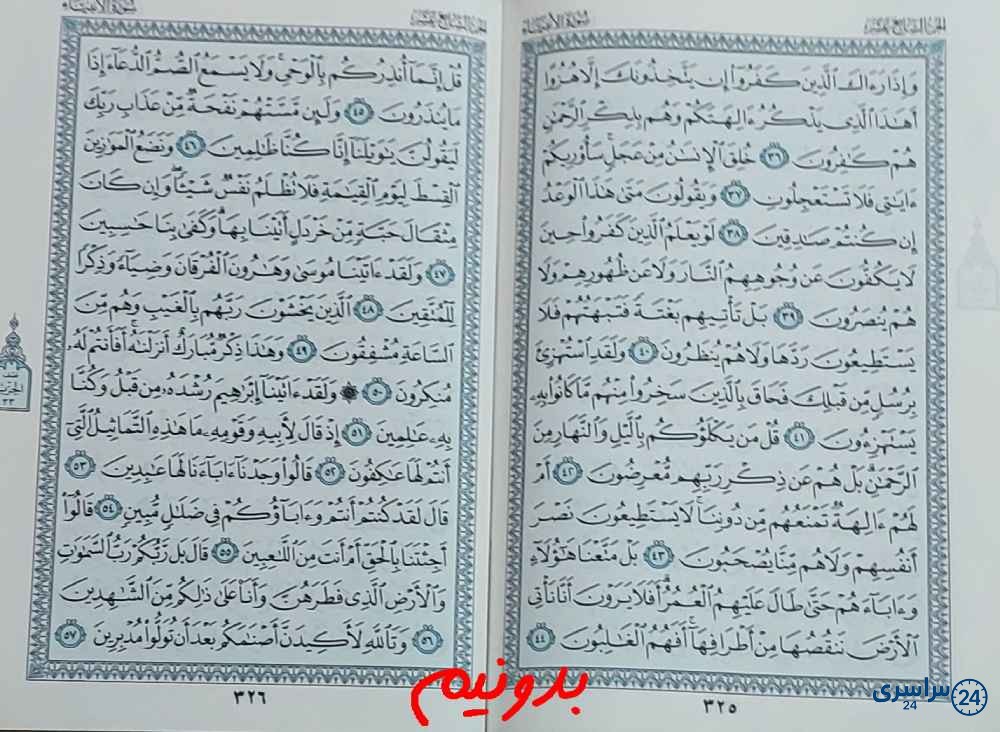 الجزء السابع عشر
سورة الأنبياء
وَإِذَا رَءَاكَ ٱلَّذِينَ كَفَرُوٓا۟ إِن يَتَّخِذُونَكَ إِلَّا هُزُوًا
أَهَٰذَا ٱلَّذِى يَذْكُرُ ءَالِهَتَكُمْ وَهُم بِذِكْرِ ٱلرَّحْمَٰنِ
هُمْ كَٰفِرُونَ ٣٦ خُلِقَ ٱلْإِنسَٰنُ مِنْ عَجَلٍ سَأُو۟رِيكُمْ
ءَايَٰتِى فَلَا تَسْتَعْجِلُونِ ٣٧ وَيَقُولُونَ مَتَىٰ هَٰذَا ٱلْوَعْدُ
إِن كُنتُمْ صَٰدِقِينَ ٣٨ لَوْ يَعْلَمُ ٱلَّذِينَ كَفَرُوا۟ حِينَ
لَا يَكُفُّونَ عَن وُجُوهِهِمُ ٱلنَّارَ وَلَا عَن ظُهُورِهِمْ وَلَا
هُمْ يُنصَرُونَ ٣٩ بَلْ تَأْتِيهِم بَغْتَةً فَتَبْهَتُهُمْ فَلَا
يَسْتَطِيعُونَ رَدَّهَا وَلَا هُمْ يُنظَرُونَ ٤٠ وَلَقَدِ ٱسْتُهْزِئَ
بِرُسُلٍ مِّن قَبْلِكَ فَحَاقَ بِٱلَّذِينَ سَخِرُوا۟ مِنْهُم مَّا كَانُوا۟ بِهِۦ
يَسْتَهْزِءُونَ ٤١ قُلْ مَن يَكْلَؤُكُم بِٱلَّيْلِ وَٱلنَّهَارِ مِنَ
ٱلرَّحْمَٰنِ بَلْ هُمْ عَن ذِكْرِ رَبِّهِم مُّعْرِضُونَ ٤٢ أَمْ
لَهُمْ ءَالِهَةٌ تَمْنَعُهُم مِّن دُونِنَا لَا يَسْتَطِيعُونَ نَصْرَ
أَنفُسِهِمْ وَلَا هُم مِّنَّا يُصْحَبُونَ ٤٣ بَلْ مَتَّعْنَا هَٰٓؤُلَآءِ
وَءَابَآءَهُمْ حَتَّىٰ طَالَ عَلَيْهِمُ ٱلْعُمُرُ أَفَلَا يَرَوْنَ أَنَّا نَأْتِى
ٱلْأَرْضَ نَنقُصُهَا مِنْ أَطْرَافِهَآ أَفَهُمُ ٱلْغَٰلِبُونَ ٤٤
٣٢٥
الجزء السابع عشر
سورة الأنبياء
قُلْ إِنَّمَآ أُنذِرُكُم بِٱلْوَحْىِ وَلَا يَسْمَعُ ٱلصُّمُّ ٱلدُّعَآءَ إِذَا
مَا يُنذَرُونَ ٤٥ وَلَئِن مَّسَّتْهُمْ نَفْحَةٌ مِّنْ عَذَابِ رَبِّكَ
لَيَقُولُنَّ يَٰوَيْلَنَآ إِنَّا كُنَّا ظَٰلِمِينَ ٤٦ وَنَضَعُ ٱلْمَوَٰزِينَ
ٱلْقِسْطَ لِيَوْمِ ٱلْقِيَٰمَةِ فَلَا تُظْلَمُ نَفْسٌ شَيْـًٔا وَإِن كَانَ
مِثْقَالَ حَبَّةٍ مِّنْ خَرْدَلٍ أَتَيْنَا بِهَا وَكَفَىٰ بِنَا حَٰسِبِينَ
٤٧ وَلَقَدْ ءَاتَيْنَا مُوسَىٰ وَهَٰرُونَ ٱلْفُرْقَانَ وَضِيَآءً وَذِكْرًا
لِّلْمُتَّقِينَ ٤٨ ٱلَّذِينَ يَخْشَوْنَ رَبَّهُم بِٱلْغَيْبِ وَهُم مِّنَ
ٱلسَّاعَةِ مُشْفِقُونَ ٤٩ وَهَٰذَا ذِكْرٌ مُّبَارَكٌ أَنزَلْنَٰهُ أَفَأَنتُمْ لَهُۥ
مُنكِرُونَ ٥٠ ۞ وَلَقَدْ ءَاتَيْنَآ إِبْرَٰهِيمَ رُشْدَهُۥ مِن قَبْلُ وَكُنَّا
بِهِۦ عَٰلِمِينَ ٥١ إِذْ قَالَ لِأَبِيهِ وَقَوْمِهِۦ مَا هَٰذِهِ ٱلتَّمَاثِيلُ ٱلَّتِىٓ
أَنتُمْ لَهَا عَٰكِفُونَ ٥٢ قَالُوا۟ وَجَدْنَآ ءَابَآءَنَا لَهَا عَٰبِدِينَ ٥٣
قَالَ لَقَدْ كُنتُمْ أَنتُمْ وَءَابَآؤُكُمْ فِى ضَلَٰلٍ مُّبِينٍ ٥٤ قَالُوٓا۟
أَجِئْتَنَا بِٱلْحَقِّ أَمْ أَنتَ مِنَ ٱللَّٰعِبِينَ ٥٥ قَالَ بَل رَّبُّكُمْ رَبُّ ٱلسَّمَٰوَٰتِ
وَٱلْأَرْضِ ٱلَّذِى فَطَرَهُنَّ وَأَنَا۠ عَلَىٰ ذَٰلِكُم مِّنَ ٱلشَّٰهِدِينَ
٥٦ وَتَٱللَّهِ لَأَكِيدَنَّ أَصْنَٰمَكُم بَعْدَ أَن تُوَلُّوا۟ مُدْبِرِينَ ٥٧
٣٢٦
نصف
الحزب
٣٣
بدونیم
سراسری 24
24